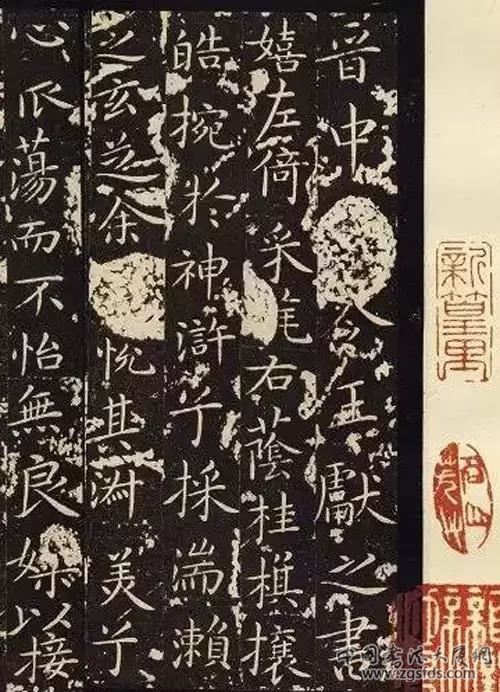 晉中令王獻之書
嬉左倚采旄右蔭桂旗攘
皓捥於神滸兮採湍瀨
之玄芝余悅其淑美兮
心振蕩而不怡無良媒以接
中国书法大展網
www.zgsids.com